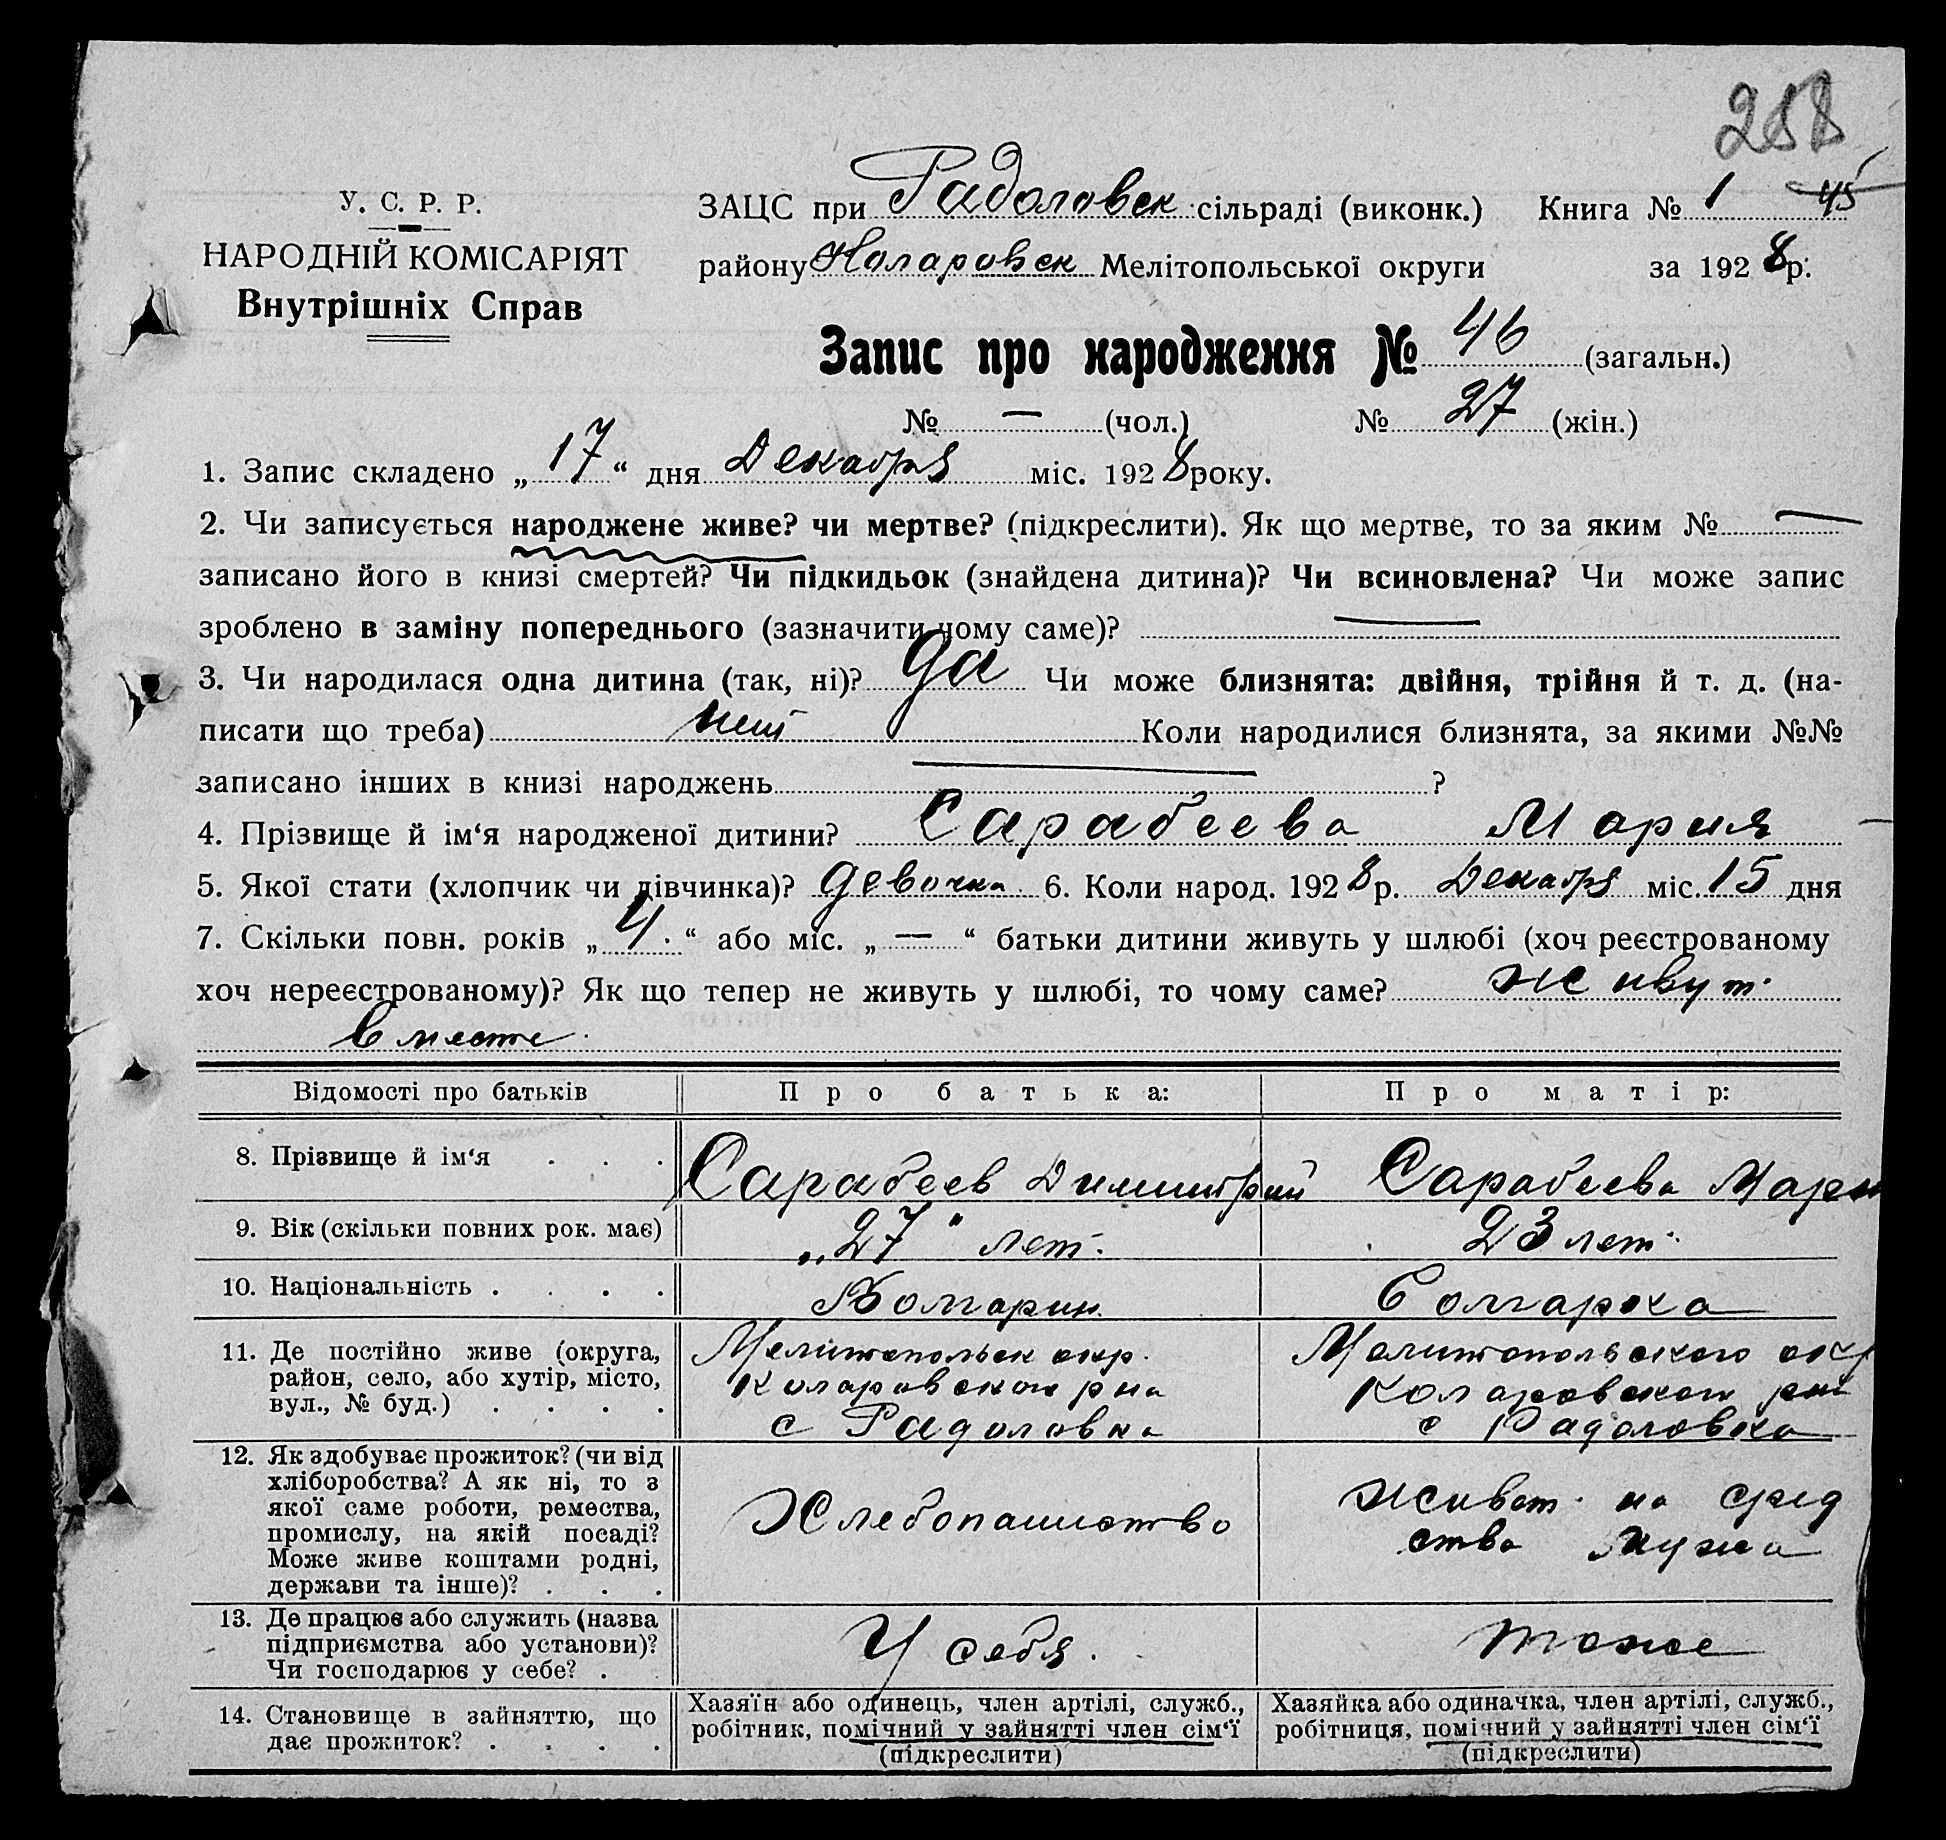 258
У. С. Р. Р.
НАРОДНІЙ КОМІСАРІЯТ
Внутрішніх Справ
ЗАЦС при Радоловск сільраді (виконк.) Книга № 1 45
району Коларовск Мелітопольської округи за 1928 р.
Запис про народження № 46 (загальн.)
№ — (чол.) № 27 (жін.)
1. Запис складено „17“ дня Декабря міс. 1928 року.
2. Чи записується народжене живе? чи мертве? (підкреслити). Як що мертве, то за яким № —
записано його в книзі смертей? Чи підкидьок (знайдена дитина)? Чи всиновлена? Чи може запис
зроблено в заміну попереднього (зазначити чому саме)? —
3. Чи народилася одна дитина (так, ні)? да Чи може близнята: двійня, трійня й т. д. (на-
писати що треба) нет Коли народилися близнята, за якими №№
записано інших в книзі народжень — ?
4. Прізвище й ім‘я народженої дитини? Сарабеева Мария
5. Якої стати (хлопчик чи дівчинка)? девочка 6. Коли народ. 1928 р. Декабря міс. 15 дня
7. Скільки повн. років „4.“ або міс. „—“ батьки дитини живуть у шлюбі (хоч реєстрованому
хоч нереєстрованому)? Як що тепер не живуть у шлюбі, то чому саме? живут
вместе.
Відомості про батьків Про батька: Про матір:
8. Прізвище й ім‘я . . . Сарабеев Димитрий Сарабеева Мария
9. Вік (скільки повних рок. має) „27“ лет. 23 лет.
10. Національність . . . . Болгарин Болгарка
11. Де постійно живе (округа,
район, село, або хутір, місто,
вул., № буд.) . . . .
Мелитопольск окр.
Коларовского рна
с Радоловка
Мелитопольского окр
Коларовского рна
с Радоловка
12. Як здобуває прожиток? (чи від
хліборобства? А як ні, то з
якої саме роботи, ремества,
промислу, на якій посаді?
Може живе коштами родні,
держави та інше)? . . .
Хлебопашество
живет на сред
ства мужа
13. Де працює або служить (назва
підприємства або установи)?
Чи господарює у себе? .
У себя.
тоже
14. Становище в зайняттю, що
дає прожиток? . . . .
Хазяїн або одинець, член артілі, служб.,
робітник, помічний у зайнятті член сім‘ї
(підкреслити)
Хазяйка або одиначка, член артілі, служб.,
робітниця, помічний у зайнятті член сім‘ї
(підкреслити)